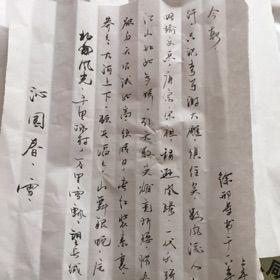 沁园春·雪
北國风光,千里冰封,万里雪飘,望长城
莽,大河上下,顿失滔滔,山舞银蛇,原
欲与天公试比高,须晴日,看红装素裹
江山如此多娇,引无数英雄竞折腰,惜秦
略输文采,唐宗宋祖,稍逊风骚,一代天骄
汗,只识弯弓射大雕,俱往矣,数风流人
今朝
徐 书于一八年